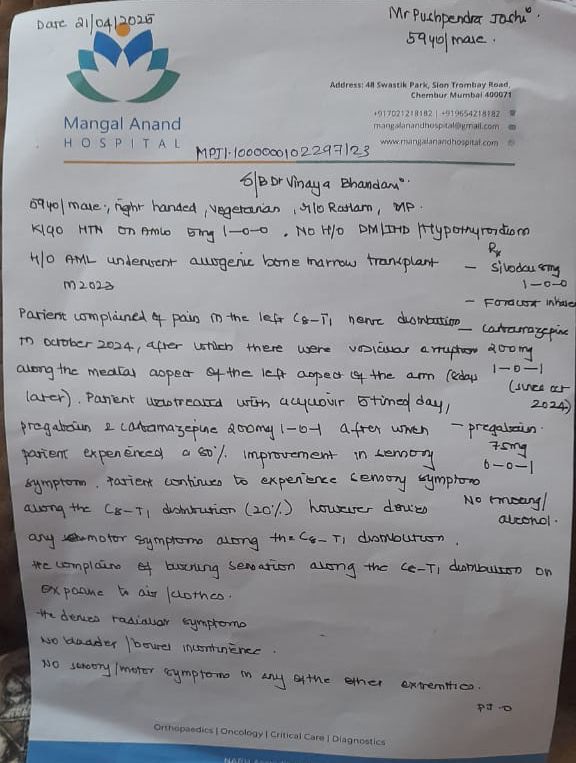 Date 21/04/2025
Mr Pushpendra Joshi
59yo/male.
Address: 48 Swastik Park, Sion Trombay Road,
Chembur Mumbai 400071
+917021218182 | +919654218182
mangalanandhospital@gmail.com
www.mangalanandhospital.com
Mangal Anand
HOSPITAL
MPJ1-1000000102297123
S/B Dr Vinaya Bhandari
59yo/male, right handed, vegetarian, r/o Ratlam, MP.
K/c/o HTN on Amlo 5mg 1-0-0. No H/o DM/IHD/Hypothyroidism
H/o AML underwent allogenic bone marrow transplant
in 2023
Rx
- Silodau 8mg
1-0-0
- Foracort inhaler
- Carbamazepine
200mg
1-0-1
(since oct
2024)
- pregabalin
75mg
0-0-1
No smoking/
alcohol.
Patient complained of pain in the left C8-T1 nerve distribution
in October 2024, after which there were vesicular erruption
along the medial aspect of the left aspect of the arm (8days
later). Patient was treated with acyclovir 5 times/day,
pregabalin & carbamazepine 200mg 1-0-1 after which
patient experienced a 80% improvement in sensory
symptom. Patient continues to experience sensory symptoms
along the C8-T1 distribution (20%) however denies
any motor symptoms along the C8-T1 distribution.
He complains of burning sensation along the C8-T1 distribution on
exposure to air/clothes.
He denies radicular symptoms
No bladder/bowel incontinence.
No sensory/motor symptoms in any of the other extremities.
PTO
Orthopaedics | Oncology | Critical Care | Diagnostics